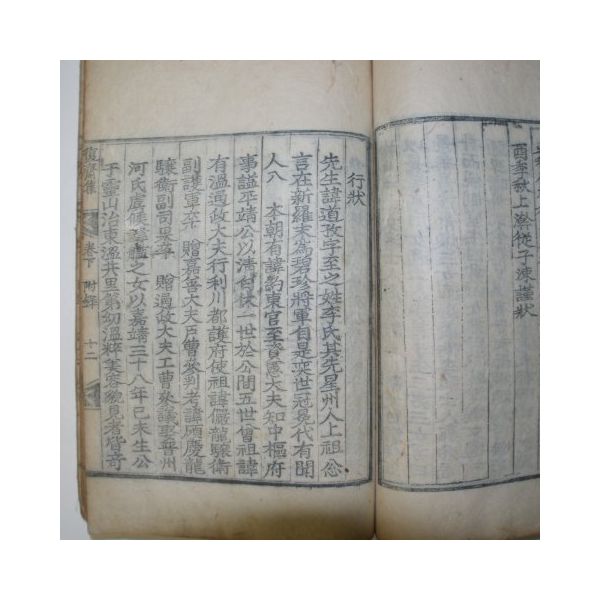 酉季秋上澣從子涑謹狀
行狀
先生諱道孜字至之姓李氏其先星州人上祖忩
言在新羅末爲碧珍將軍自是奕世冠冕代有聞
人入 本朝有諱約東官至資憲大夫知中樞府
事謚平靖公以淸白 一世於公間五世曾祖諱
有溫通政大夫行利川都護府使祖諱儼龍驤衛
副護軍卒 贈嘉善大夫戶曹參判考諱 慶龍
驤衛副司果卒 贈通政大夫工曹參議妣晉州
河氏虞候 之女以嘉靖三十八年己未生公
于靈山治東溫井里第幼溫粹美容貌見者皆奇
復齋集 卷下 附錄 十二